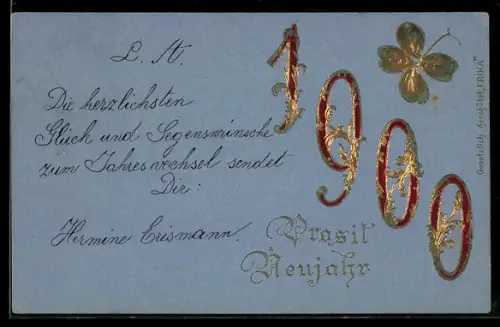 L. A.
Die herzlichsten
Glück und Segenswünsche
zum Jahreswechsel sendet
Dir:
Hermine Erismann.
1900
Prosit
Neujahr
Gesetzlich geschützt „ERIKA“